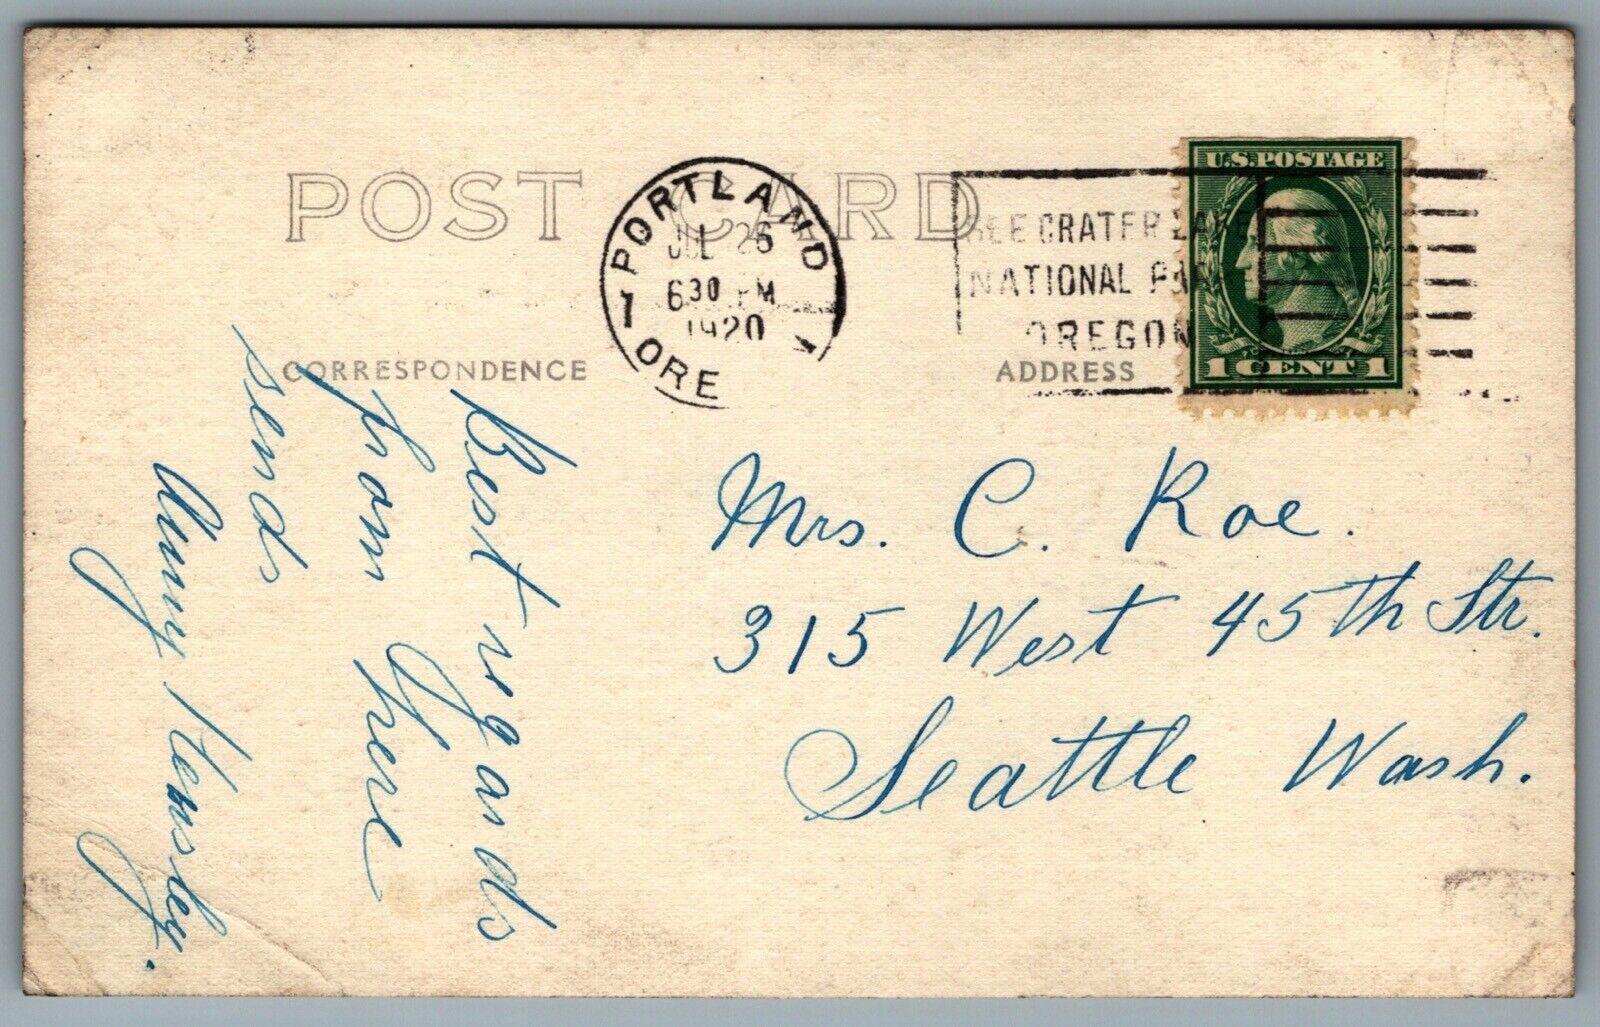 POST CARD
PORTLAND
JUL 26
630 PM
1920
1
ORE
SEE CRATER LAKE
NATIONAL PARK
OREGON
U.S. POSTAGE
1 CENT 1
CORRESPONDENCE
ADDRESS
Best regards
from here
sends
Anny Hensley.
Mrs. C. Roe.
315 West 45th Str.
Seattle Wash.